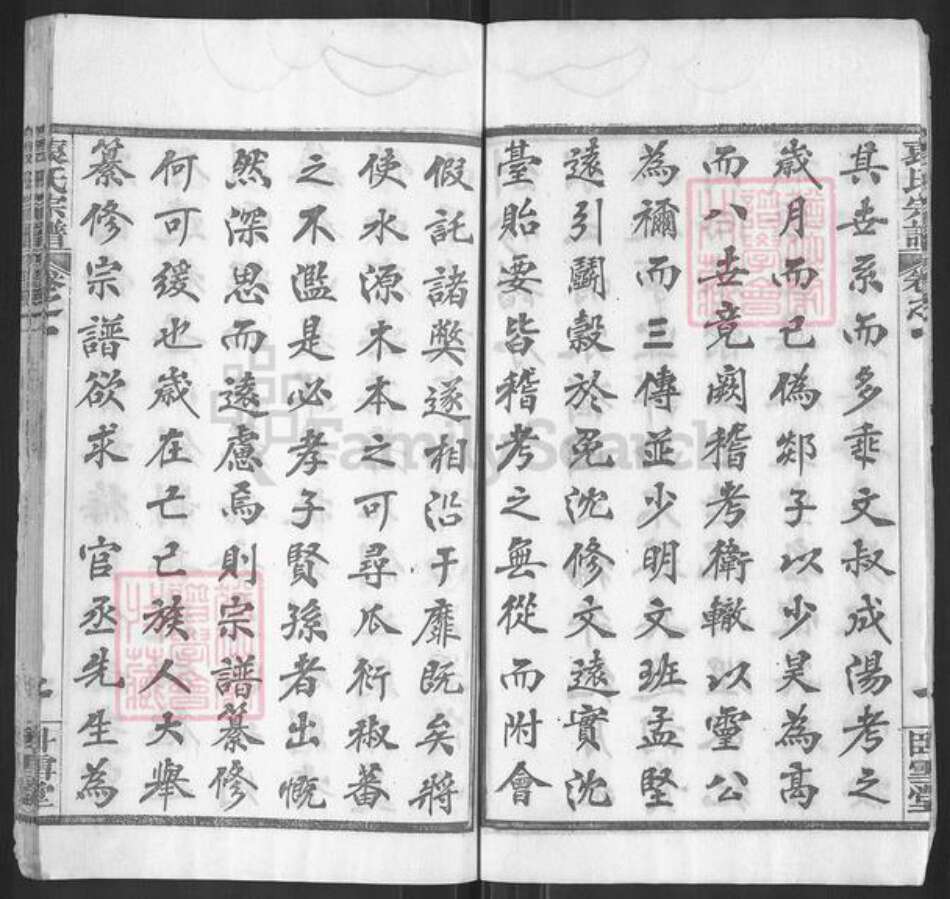 其世系而多乖文叔成湯考之
歲月而已偽郯子以少昊為高
而八世竟闕稽考衛轍以靈公
為禰而三傳並少明文班孟堅
遠引鬬穀於菟沈修文遠實沈
臺貽要皆稽考之無從而附會
假託諸獘遂相沿于靡既矣將
使水源木本之可尋瓜衍椒蕃
之不濫是必孝子賢孫者出慨
然深思而遠慮焉則宗譜纂修
何可緩也歲在乙巳族人大舉
纂修宗譜欲求官丞先生為
袁氏宗譜
卷之一
臥雪堂
FamilySearch